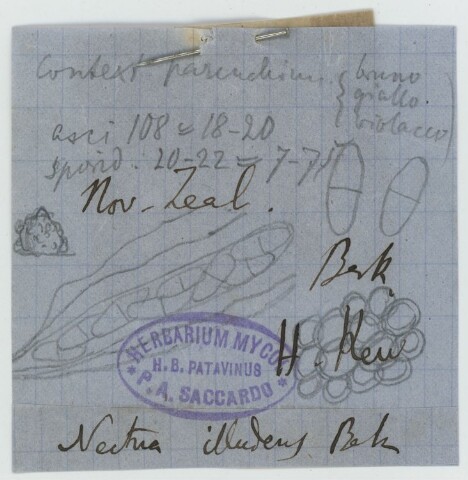 context parenchim. { bruno
giallo.
violacco )
asci 108 = 18-20
sporid. 20-22 = 7-7½
Nov-Zeal.
Berk.
H. Kew
HERBARIUM MYCOL
H. B. PATAVINUS
P. A. SACCARDO
Nectria illudens Berk